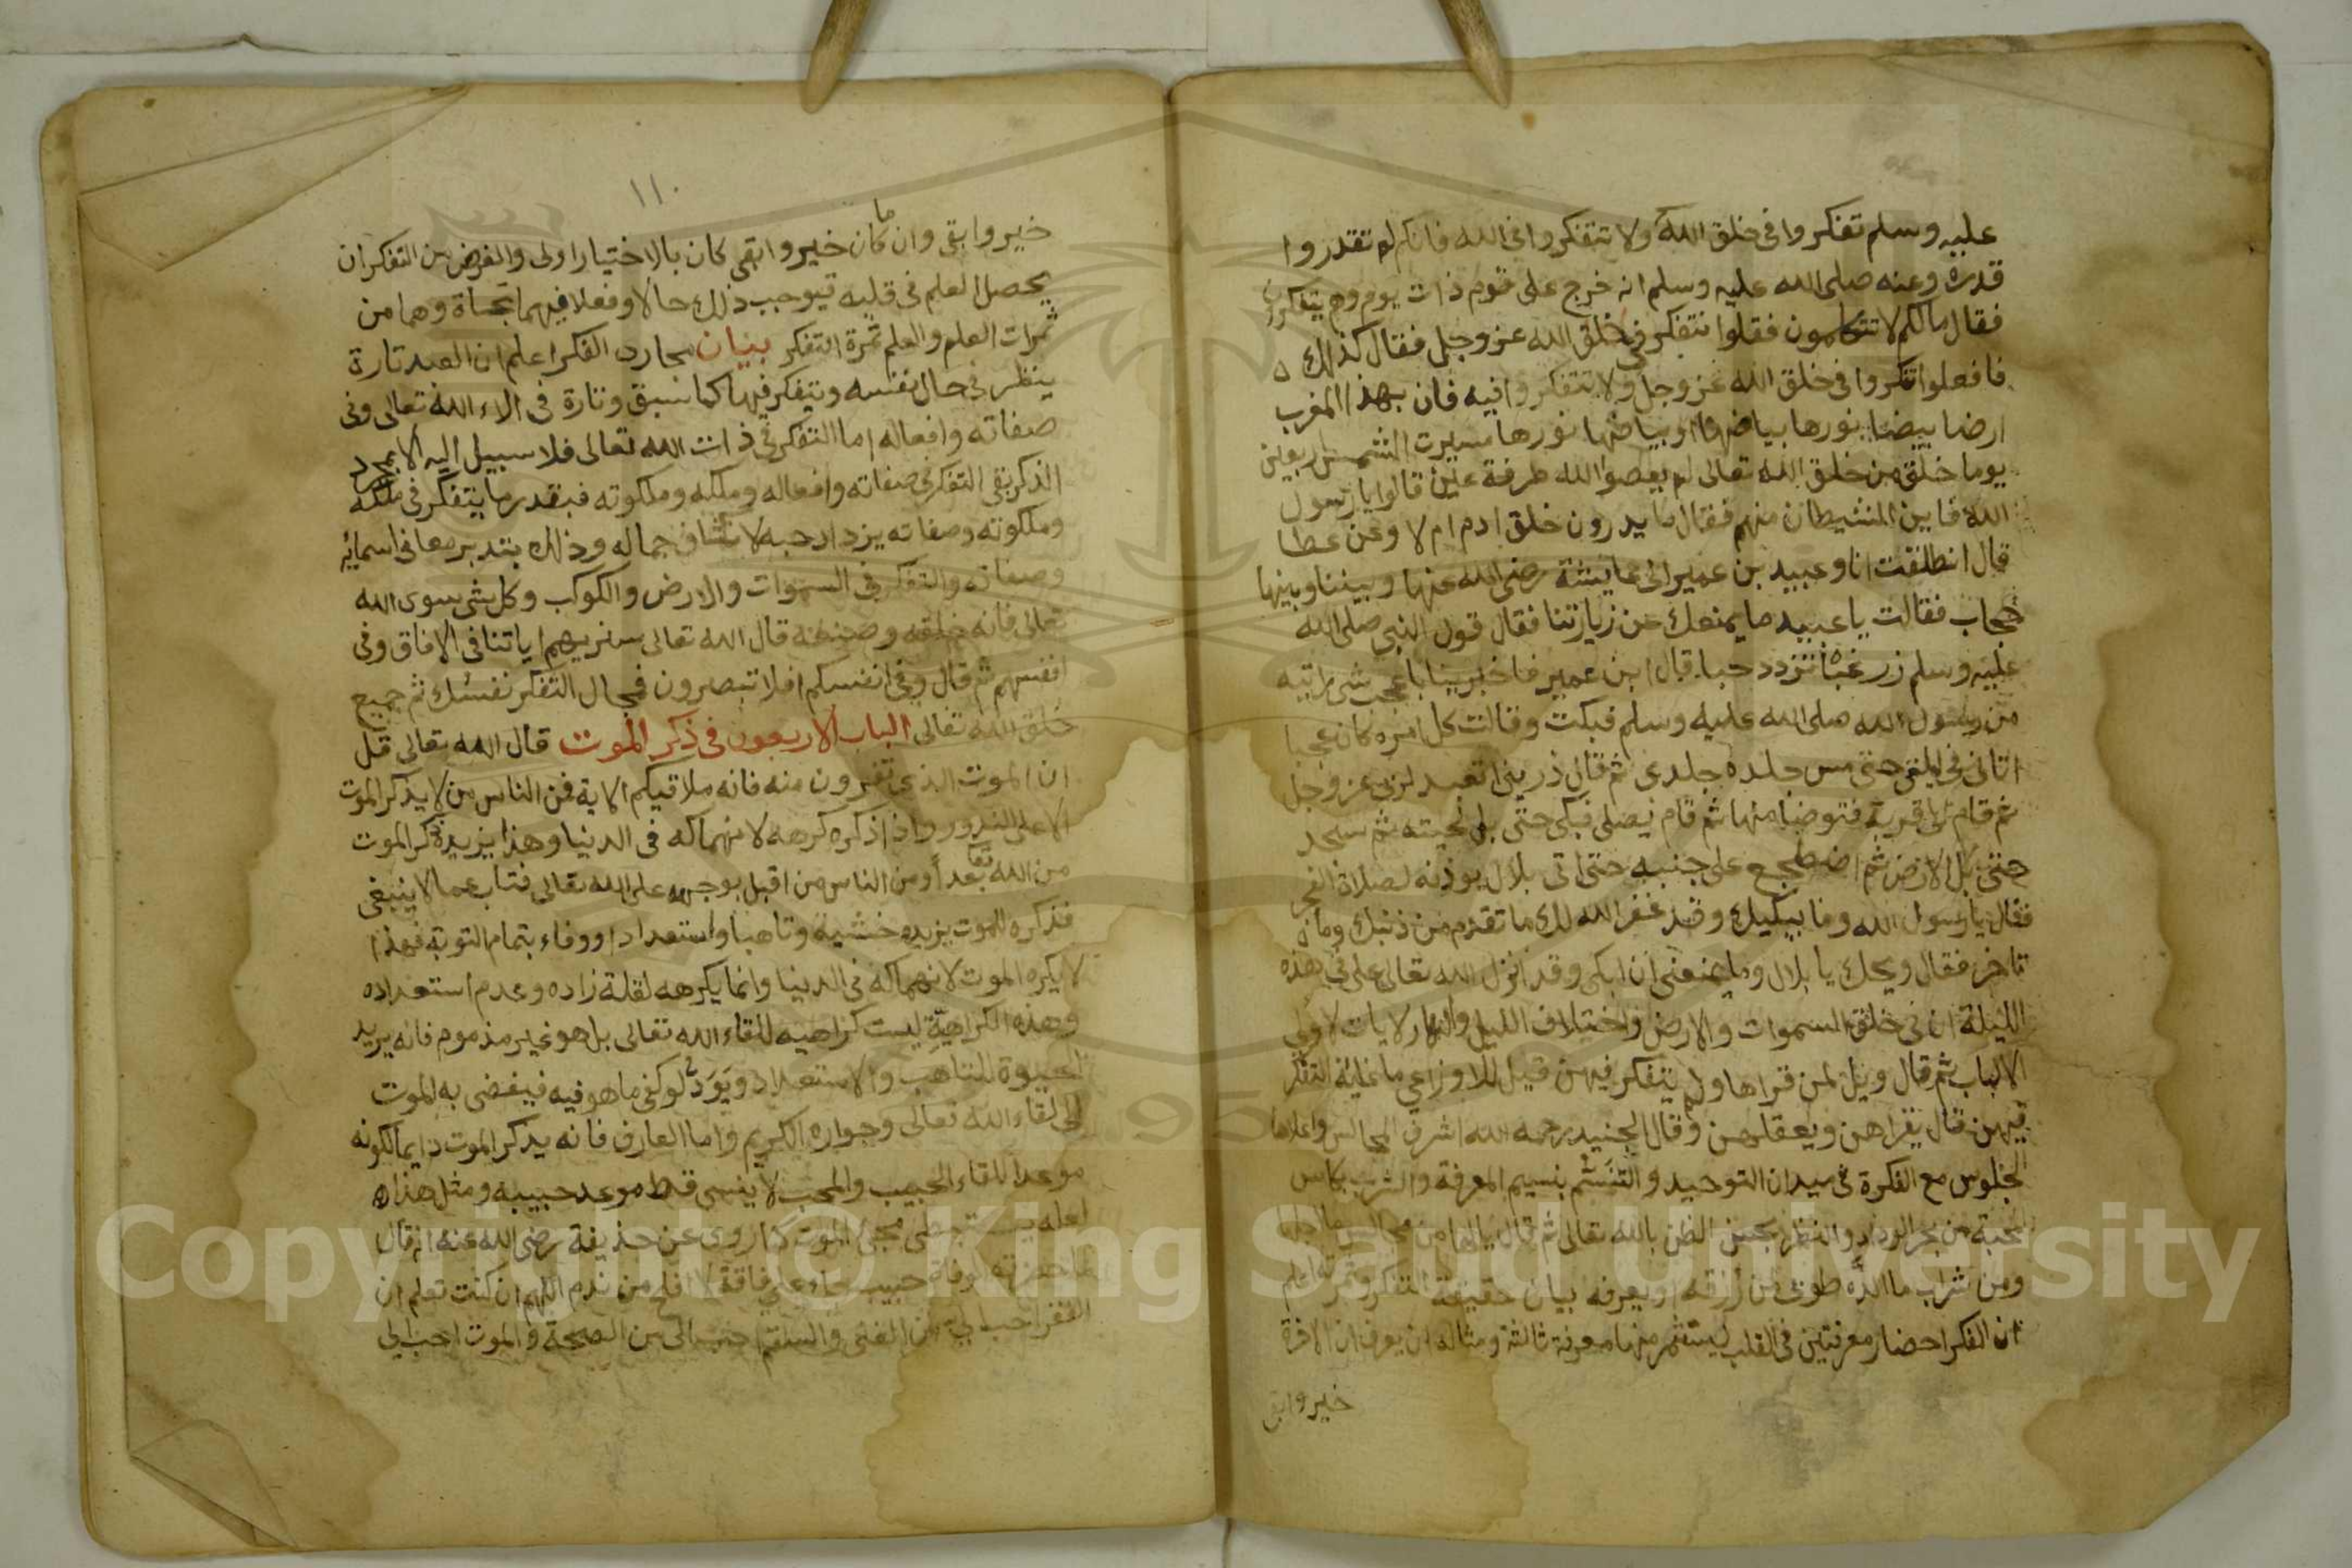 عليه وسلم تفكروا في خلق الله ولا تتفكروا في الله فانكم لم تقدروا
قدره وعنه صلى الله عليه وسلم انه خرج على قوم ذات يوم وهم يتفكرون
فقال مالكم لا تتكلمون فقلوا نتفكر في خلق الله عز وجل فقال كذلك
فافعلوا تفكروا في خلق الله عز وجل ولا تتفكروا فيه فان بهذا المغرب
ارضا بيضا نورها بياضها او بياضها نورها مسيرت الشمس اربعين
يوما خلق من خلق الله تعالى لم يعصوا الله طرفة عين قالوا يا رسول
الله فاين الشيطان منهم فقال ما يدرون خلق ادم ام لا وعن عطا
قال انطلقت انا وعبيد بن عمير الى عايشة رضي الله عنها وبيننا وبينها
حجاب فقالت يا عبيد ما يمنعك من زيارتنا فقال قول النبي صلى الله
عليه وسلم زر غبا تزدد حبا قال ابن عمير فاخبرينا باعجب شي رايتيه
من رسول الله صلى الله عليه وسلم فبكت وقالت كل امره كان عجبا
اتاني في ليلتي حتى مس جلده جلدي ثم قال ذريني اتعبد لربي عز وجل
ثم قام الى قربة فتوضا منها ثم قام يصلي فبكى حتى بل لحيته ثم سجد
حتى بل الارض ثم اضطجع على جنبيه حتى اتى بلال يوذنه لصلاة الفجر
فقال يا رسول الله وما يبكيك وقد غفر الله لك ما تقدم من ذنبك وما
تاخر فقال ويحك يا بلال وما يمنعني ان ابكي وقد انزل الله تعالى علي في هذه
الليلة ان في خلق السموات والارض واختلاف الليل والنهار لايات لاولي
الالباب ثم قال ويل لمن قراها ولم يتفكر فيهن قيل للاوزاعي ما غاية التفكر
فيهن قال يقراهن ويعقلهن وقال الجنيد رحمه الله اشرف المجالس واعلاها
الجلوس مع الفكرة في ميدان التوحيد والتنسم بنسيم المعرفة والشرب بكاس
المحبة من بحر الوداد والنظر بحسن الظن بالله تعالى ثم قال يا لها من مجالس ما
ومن شراب ما الذه طوبى لمن رزقه او يعرفه بيان حقيقة التفكر وثمرته اعلم
ان الفكر احضار معرفتين في القلب ليستثمر منها معرفة ثالثة ومثاله ان يعرف ان الاخرة
خير وابقى
١١٠
خير وابقى وان ما كان خير وابقى كان بالاختيار اولى والغرض من التفكر ان
يحصل العلم في قلبه فيوجب ذلك حالا وفعلا فيهما نجاة وهما من
ثمرات العلم والعلم ثمرة التفكر بنيان مجارى الفكر اعلم ان العبد تارة
ينظر في حال نفسه ويتفكر فيها كما سبق وتارة في الاء الله تعالى وفي
صفاته وافعاله اما التفكر في ذات الله تعالى فلا سبيل اليه الا بمجرد
الذكر بقي التفكر في صفاته وافعاله وملكه وملكوته فبقدر ما يتفكر في ملكه
وملكوته وصفاته يزداد حبه لانكشاف جماله وذلك بتدبر معاني اسمايه
وصفاته والتفكر في السموات والارض والكوكب وكل شي سوى الله
تعالى فانه خلقه وصنعه قال الله تعالى سنريهم اياتنا في الافاق وفي
انفسهم ثم قال وفي انفسكم افلا تبصرون فمجال التفكر نفسك ثم جميع
خلق الله تعالى الباب الاربعون في ذكر الموت قال الله تعالى قل
ان الموت الذي تفرون منه فانه ملاقيكم الاية فمن الناس من لا يذكر الموت
الا على الندور واذا ذكره كرهه لانهماكه في الدنيا وهذا يزيده ذكر الموت
من الله تعا بعدا ومن الناس من اقبل بوجهه على الله تعالى فتاب عما لا ينبغي
فذكره للموت يزيده خشية وتاهبا واستعدادا ووفاء بتمام التوبة فهذا
لا يكره الموت لانهماكه في الدنيا وانما يكرهه لقلة زاده وعدم استعداده
وهذه الكراهية ليست كراهيه للقاء الله تعالى بل هو غير مذموم فانه يريد
الحيوة للتاهب والاستعداد ويود لو كفي ما هو فيه فيفضي به الموت
الى لقاء الله تعالى وجواره الكريم واما العارف فانه يذكر الموت دايما لكونه
موعدا للقاء الحبيب والمحب لا ينسى قط موعد حبيبه ومثل هذا
لعله يستبطي مجئ الموت كما روي عن حذيفة رضي الله عنه انه قال
لما حضرته الوفاة حبيب جاء على فاقة لا افلح من ندم اللهم ان كنت تعلم ان
الفقر احب الي من الغنى والسقم احب الي من الصحة والموت احب الي
Copyright © King Saud University
1957